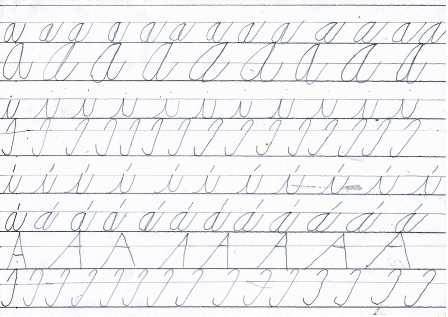 a a a a a a a a a a a a a
A A A A A A A A A
i i i i i i i i i i i
I I I I I I I I I I I I I I I
í í í í í í í í í í í
á á á á á á á á á á á á
A A A A A A A A
I I I I I I I I I I I I I I I